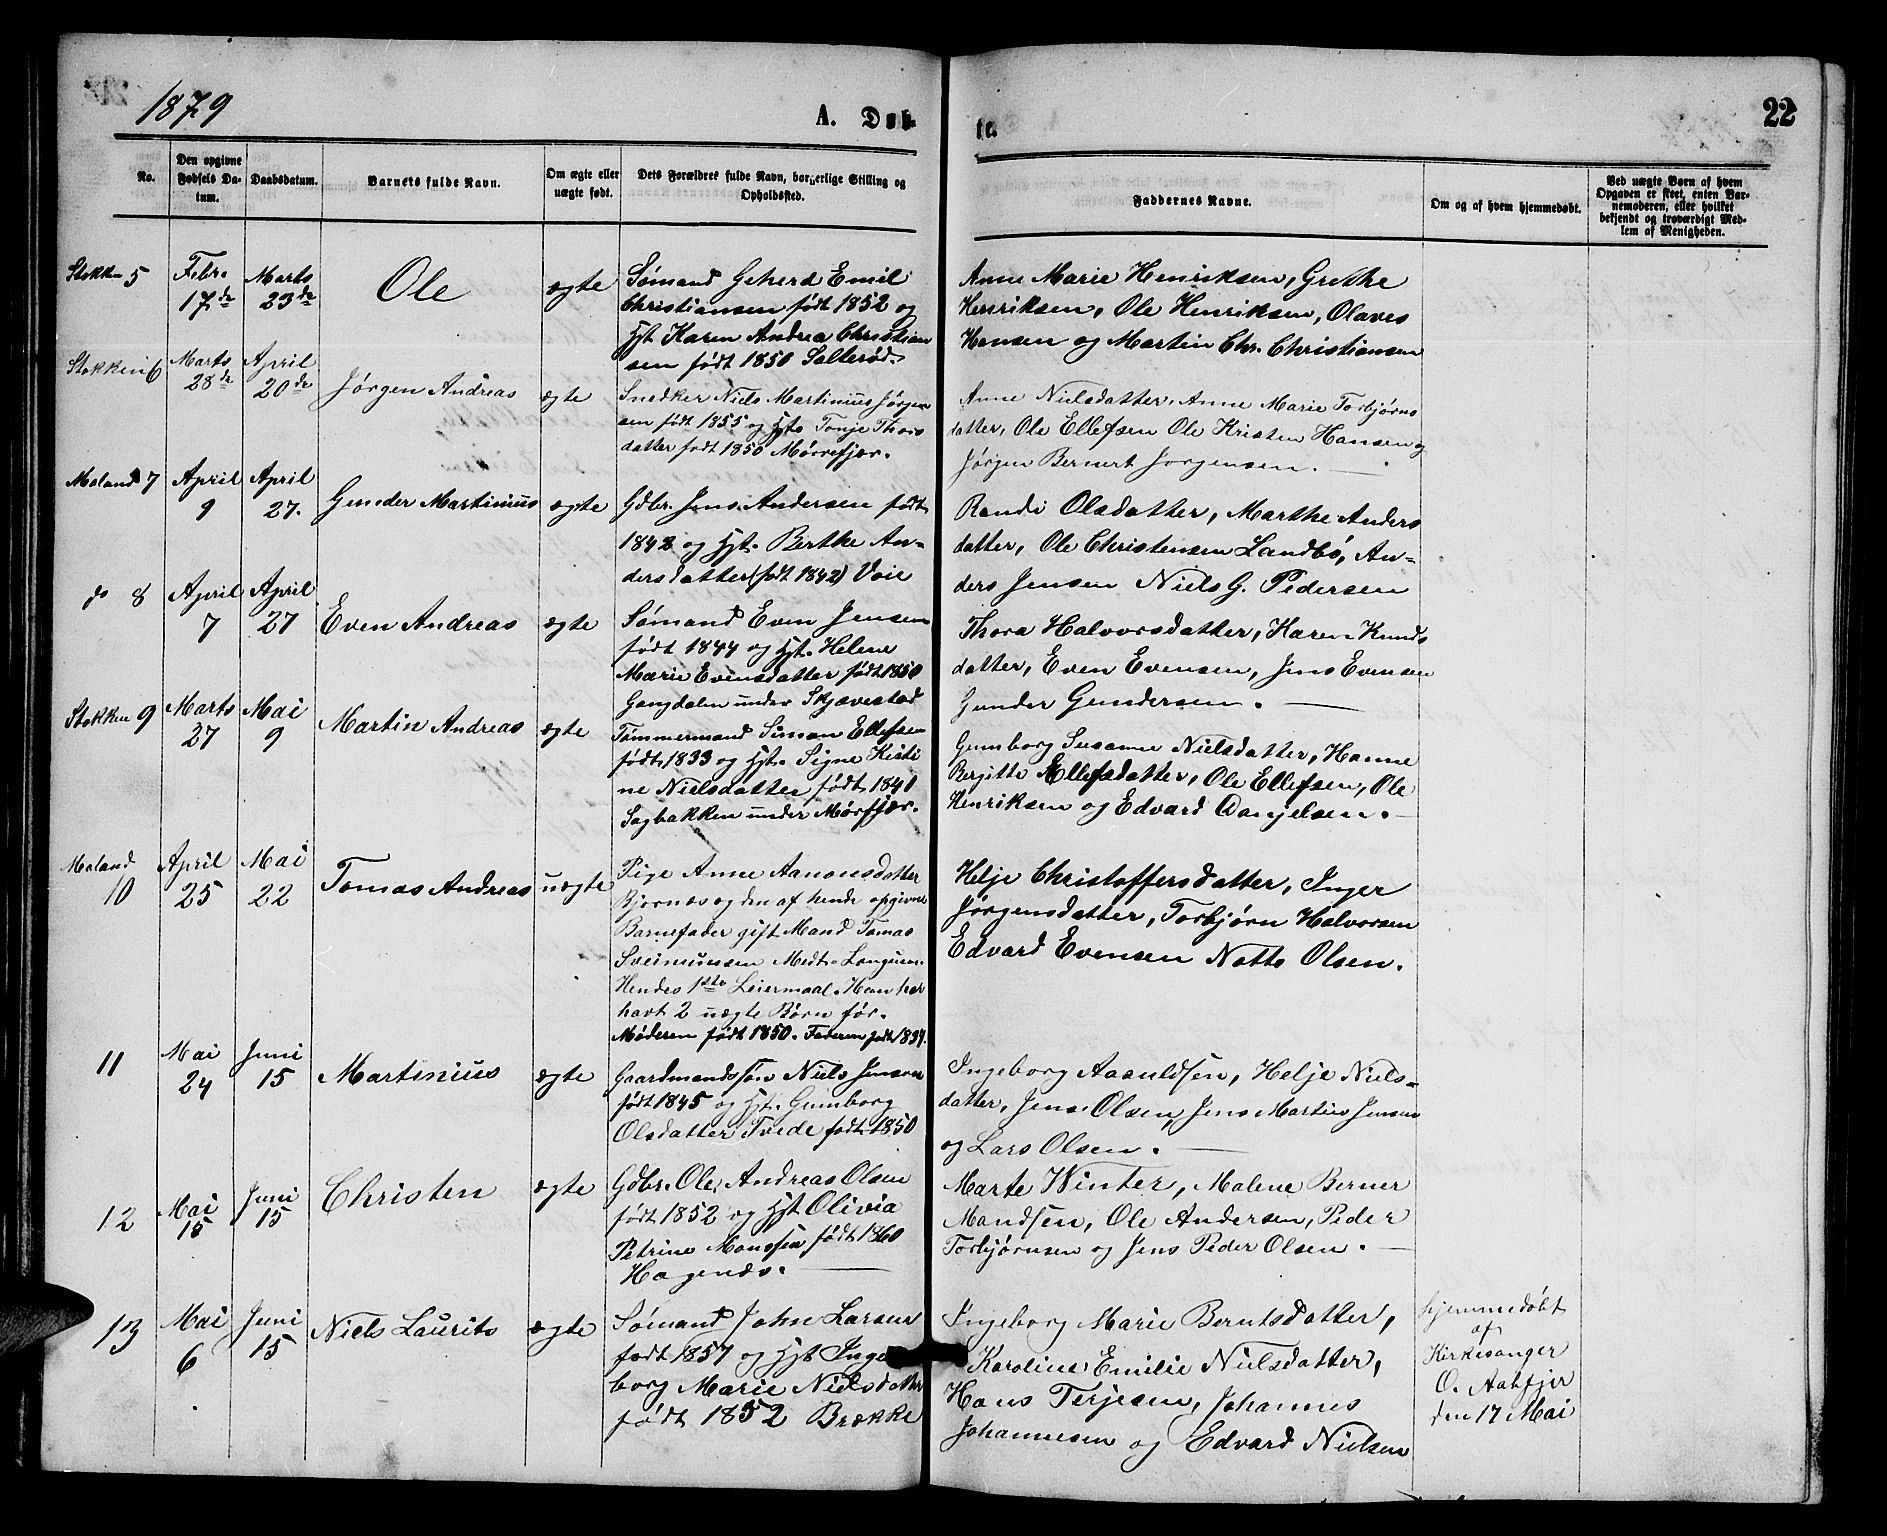 1879
A. Døb
te.
22
No.
Den opgivne Fødsels Da-
tum.
Daabsdatum.
Barnets fulde Navn.
Om ægte eller
uægte født.
Dets Forældres fulde Navn, borgerlige Stilling og
Opholdssted.
Faddernes Navne.
Om og af hvem hjemmedøbt.
Ved uægte Børn af hvem
Opgaven er skeet, enten Bar-
nemoderen, eller hvilket
bekjendt og troværdigt Med-
lem af Menigheden.
Stokken 5
Febr.
17de
Marts
23de
Ole
ægte
Sømand Geherd Emil
Christiansen født 1852 og
Hst Karen Andrea Christian
sen født 1850 Salterød.
Anne Marie Henriksen, Grethe
Henriksen, Ole Henriksen, Olaves
Hansen og Martin Chr. Christiansen
Stokken 6
Marts
28de
April
20de
Jørgen Andreas
ægte
Snedker Niels Martinius Jørgen
sen født 1855 og Hst Tonje Thors
datter født 1850 Mørrefjær.
Anne Nielsdatter, Anne Marie Torbjørns
datter, Ole Ellefsen Ole Kristen Hansen og
Jørgen Bernert Jorgensen.
Moland 7
April
9
April
27.
Gunder Martinius
ægte
Gdbr. Jens Andersen født
1842 og Hst. Berthe An-
dersdatter (født 1842) Voie
Randi Olsdatter, Marthe Anders
datter, Ole Christensen Landbö, An-
ders Jensen Niels G. Pedersen
do 8
April
7
April
27
Even Andreas
ægte
Sømand Even Jensen
født 1844 og Hst. Helene
Marie Evensdatter født 1850
Gangdalen under Skjævestad
Thora Halvorsdatter, Karen Knuds
datter, Even Evensen, Jens Evensen
Gunder Gundersen.
Stokken 9
Marts
27
Mai
9
Martin Andreas
ægte
Tømmermand Simon Ellefsen
født 1833 og Hst. Signe Kristi
ne Nielsdatter født 1840
Sagbakken under Mørfjær.
Gunborg Susanne Nielsdatter, Hanne
Bergitte Ellefsdatter, Ole Ellefsen, Ole
Henriksen og Edvard Danjelsen.
Moland
10
April
25
Mai
22
Tomas Andreas
uægte
Pige Anne Aanonsdatter
Bjornæs og den af hende opgivne
Barnefader gift Mand Tomas
Sveinunsen Medt. Longum.
Hendes 1ste Leiermaal. Han har
havt 2 uægte Børn før.
Moderen født 1850. Faderen født 1837.
Helje Christoffersdatter, Inger
Jørgensdatter, Torbjørn Halvorsen
Edvard Evensen Notto Olsen.
11
Mai
24
Juni
15
Martinius
ægte
Gaardmandssøn Niels Jensen
født 1845 og Hst. Gunborg
Olsdatter Tvede født 1850
Ingeborg Aasuldsen, Helje Niels-
datter, Jens Olsen, Jens Martin Jensen
og Lars Olsen.
12
Mai
15
Juni
15
Christen
ægte
Gdbr. Ole Andreas Olsen
født 1852 og Hst Olivia
Petrine Monssen født 1860
Hagenæs.
Marte Winter, Malene Berner
Mandsen, Ole Andersen, Peder
Torbjørnsen og Jens Peder Olsen.
13
Mai
6
Juni
15
Niels Laurits
ægte
Sømand John Larsen
født 1857 og Hst Inge
borg Marie Nielsdatter
født 1852 Brække
Ingeborg Marie Berntsdatter,
Karoline Emilie Nielsdatter,
Hans Terjesen, Johannes
Johannesen og Edvard Nielsen
hjemmedøbt
af
Kirkesanger
O. Aabfjer
den 17 Mai